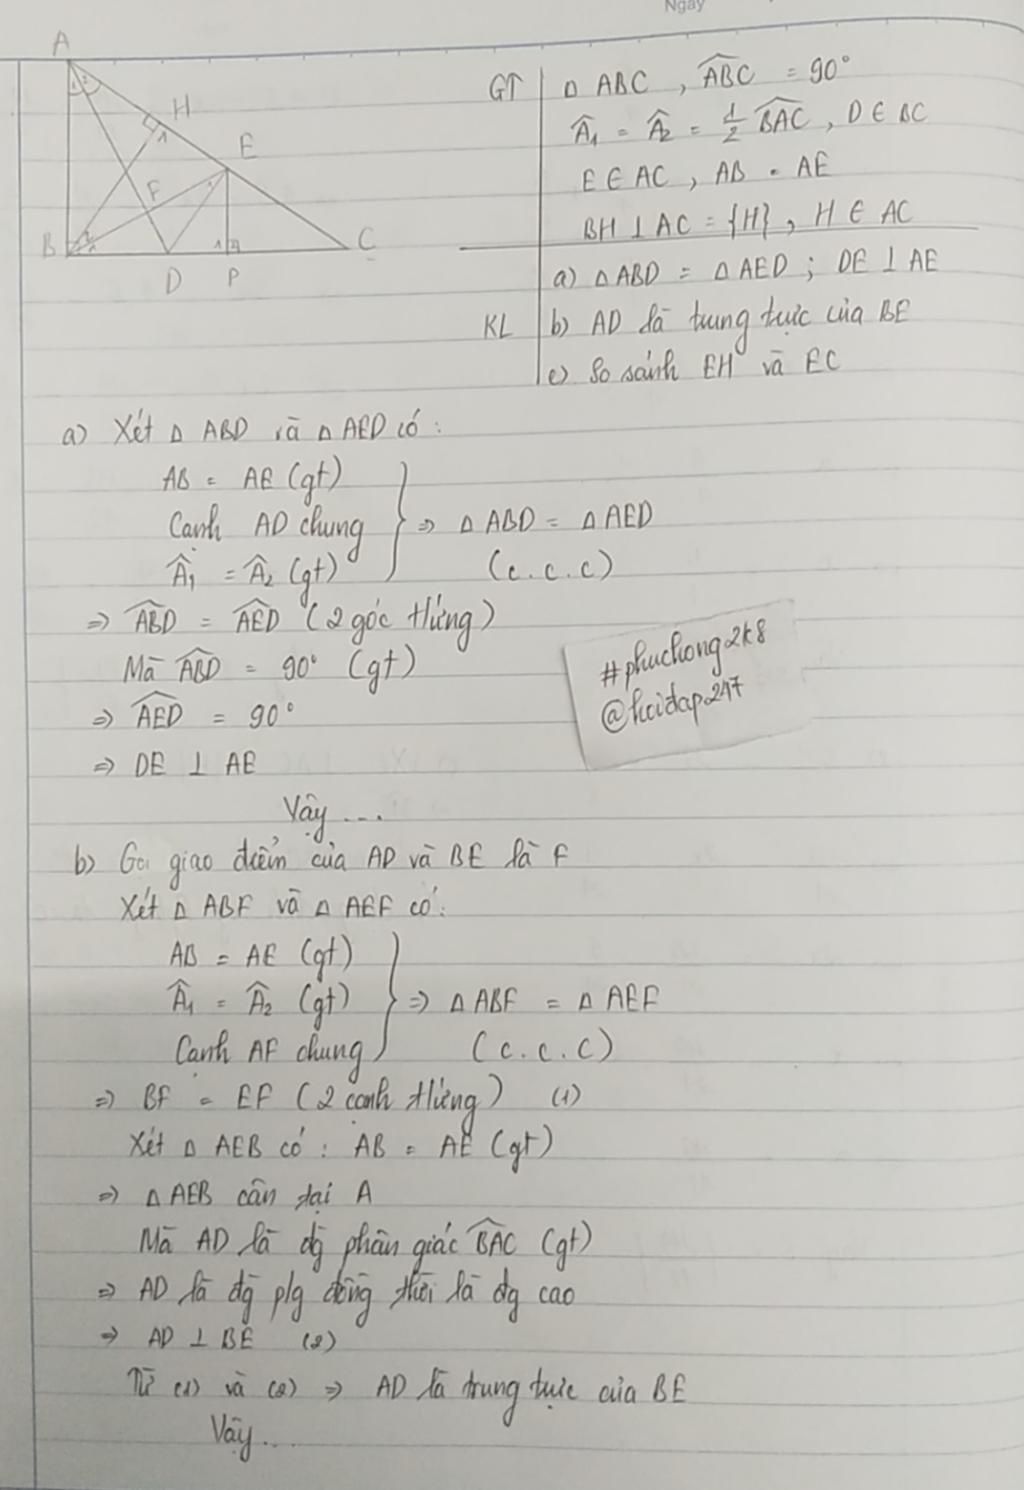 Ngày
A
1
2
H
1
E
F
B
2
1
1
2
C
D
P
GT
Δ ABC , ABC̑ = 90°
Â₁ = Â₂ = 1/2 BAC̑ , D ∈ BC
E ∈ AC , AB = AE
BH ⊥ AC = {H} , H ∈ AC
KL
a) Δ ABD = Δ AED ; DE ⊥ AE
b) AD là trung trực của BE
c) So sánh EH và EC
a) Xét Δ ABD và Δ AED có :
AB = AE (gt)
Cạnh AD chung
Â₁ = Â₂ (gt)
⇒ Δ ABD = Δ AED
(c.c.c)
⇒ ABD̑ = AED̑ (2 góc tứng)
Mà ABD̑ = 90° (gt)
⇒ AED̑ = 90°
⇒ DE ⊥ AE
Vậy ...
#phuchong2k8
@hoidap247
b) Gọi giao điểm của AD và BE là F
Xét Δ ABF và Δ AEF có :
AB = AE (gt)
Â₁ = Â₂ (gt)
Cạnh AF chung
⇒ Δ ABF = Δ AEF
(c.c.c)
⇒ BF = EF (2 cạnh tứng) (1)
Xét Δ AEB có : AB = AE (gt)
⇒ Δ AEB cân tại A
Mà AD là đg phân giác BAC̑ (gt)
⇒ AD là đg p/g đồng thời là đg cao
⇒ AD ⊥ BE (2)
Từ (1) và (2) ⇒ AD là trung trực của BE
Vậy...